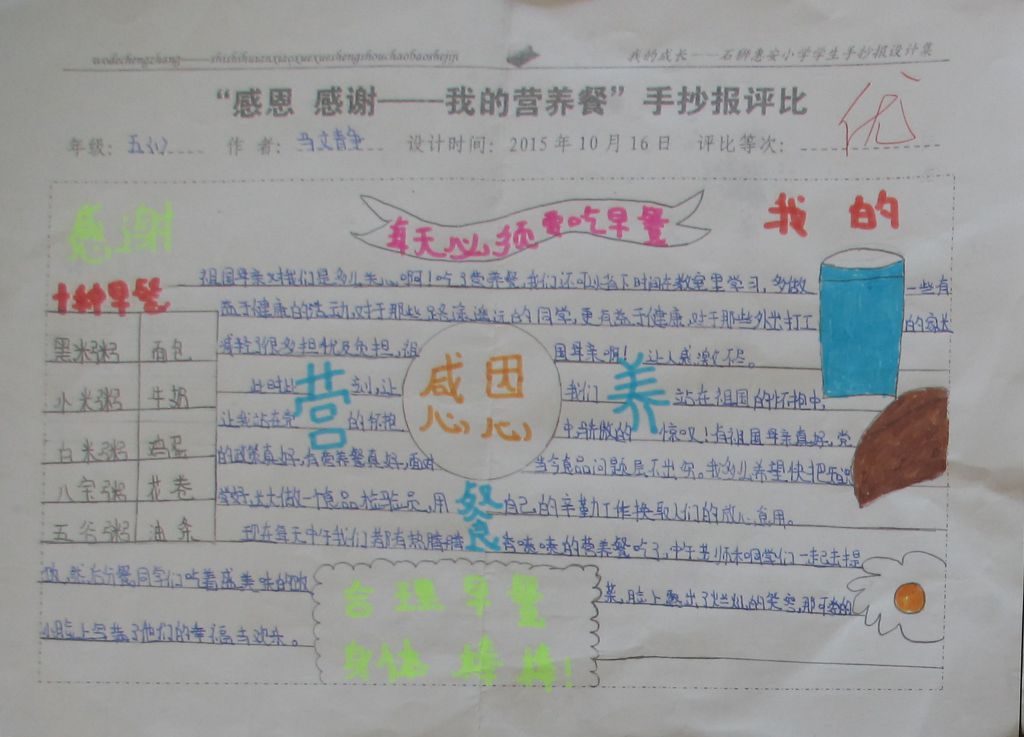 我的成长——石狮惠安小学学生手抄报设计集
“感恩 感谢——我的营养餐”手抄报评比
优
年级：五(1) 作者：马文静 设计时间：2015年10月16日 评比等次：
感谢
每天必须要吃早餐
我的
十种早餐
黑米粥 面包
小米粥 牛奶
白米粥 鸡蛋
八宝粥 花卷
五谷粥 油条
感恩
营
养
餐
祖国母亲对我们是多么关心啊！吃了营养餐，我们还可以省下时间在教室里学习，多做一些有
益于健康的活动，对于那些路途遥远的同学，更有益于健康，对于那些外出打工的家长
减轻了很多担忧及负担，祖国母亲啊！让人感激不尽。
此时此刻，让我们站在祖国的怀抱中，
让我站在党的怀抱中，骄傲的惊叹！有祖国母亲真好，党
的政策真好，有营养餐真好，面对当今食品问题层不出穷。我多么希望快把
长大做一个食品检验员，用自己的辛勤工作换取人们的放心食用。
现在每天中午我们都有热腾腾香喷喷的营养餐吃了，中午老师和同学们一起去提
饭，然后分餐，同学们吃着盛美味的饭菜，脸上露出了灿烂的笑容，那可爱的
小脸上写满了他们的幸福与欢乐。
合理早餐
身体棒棒！